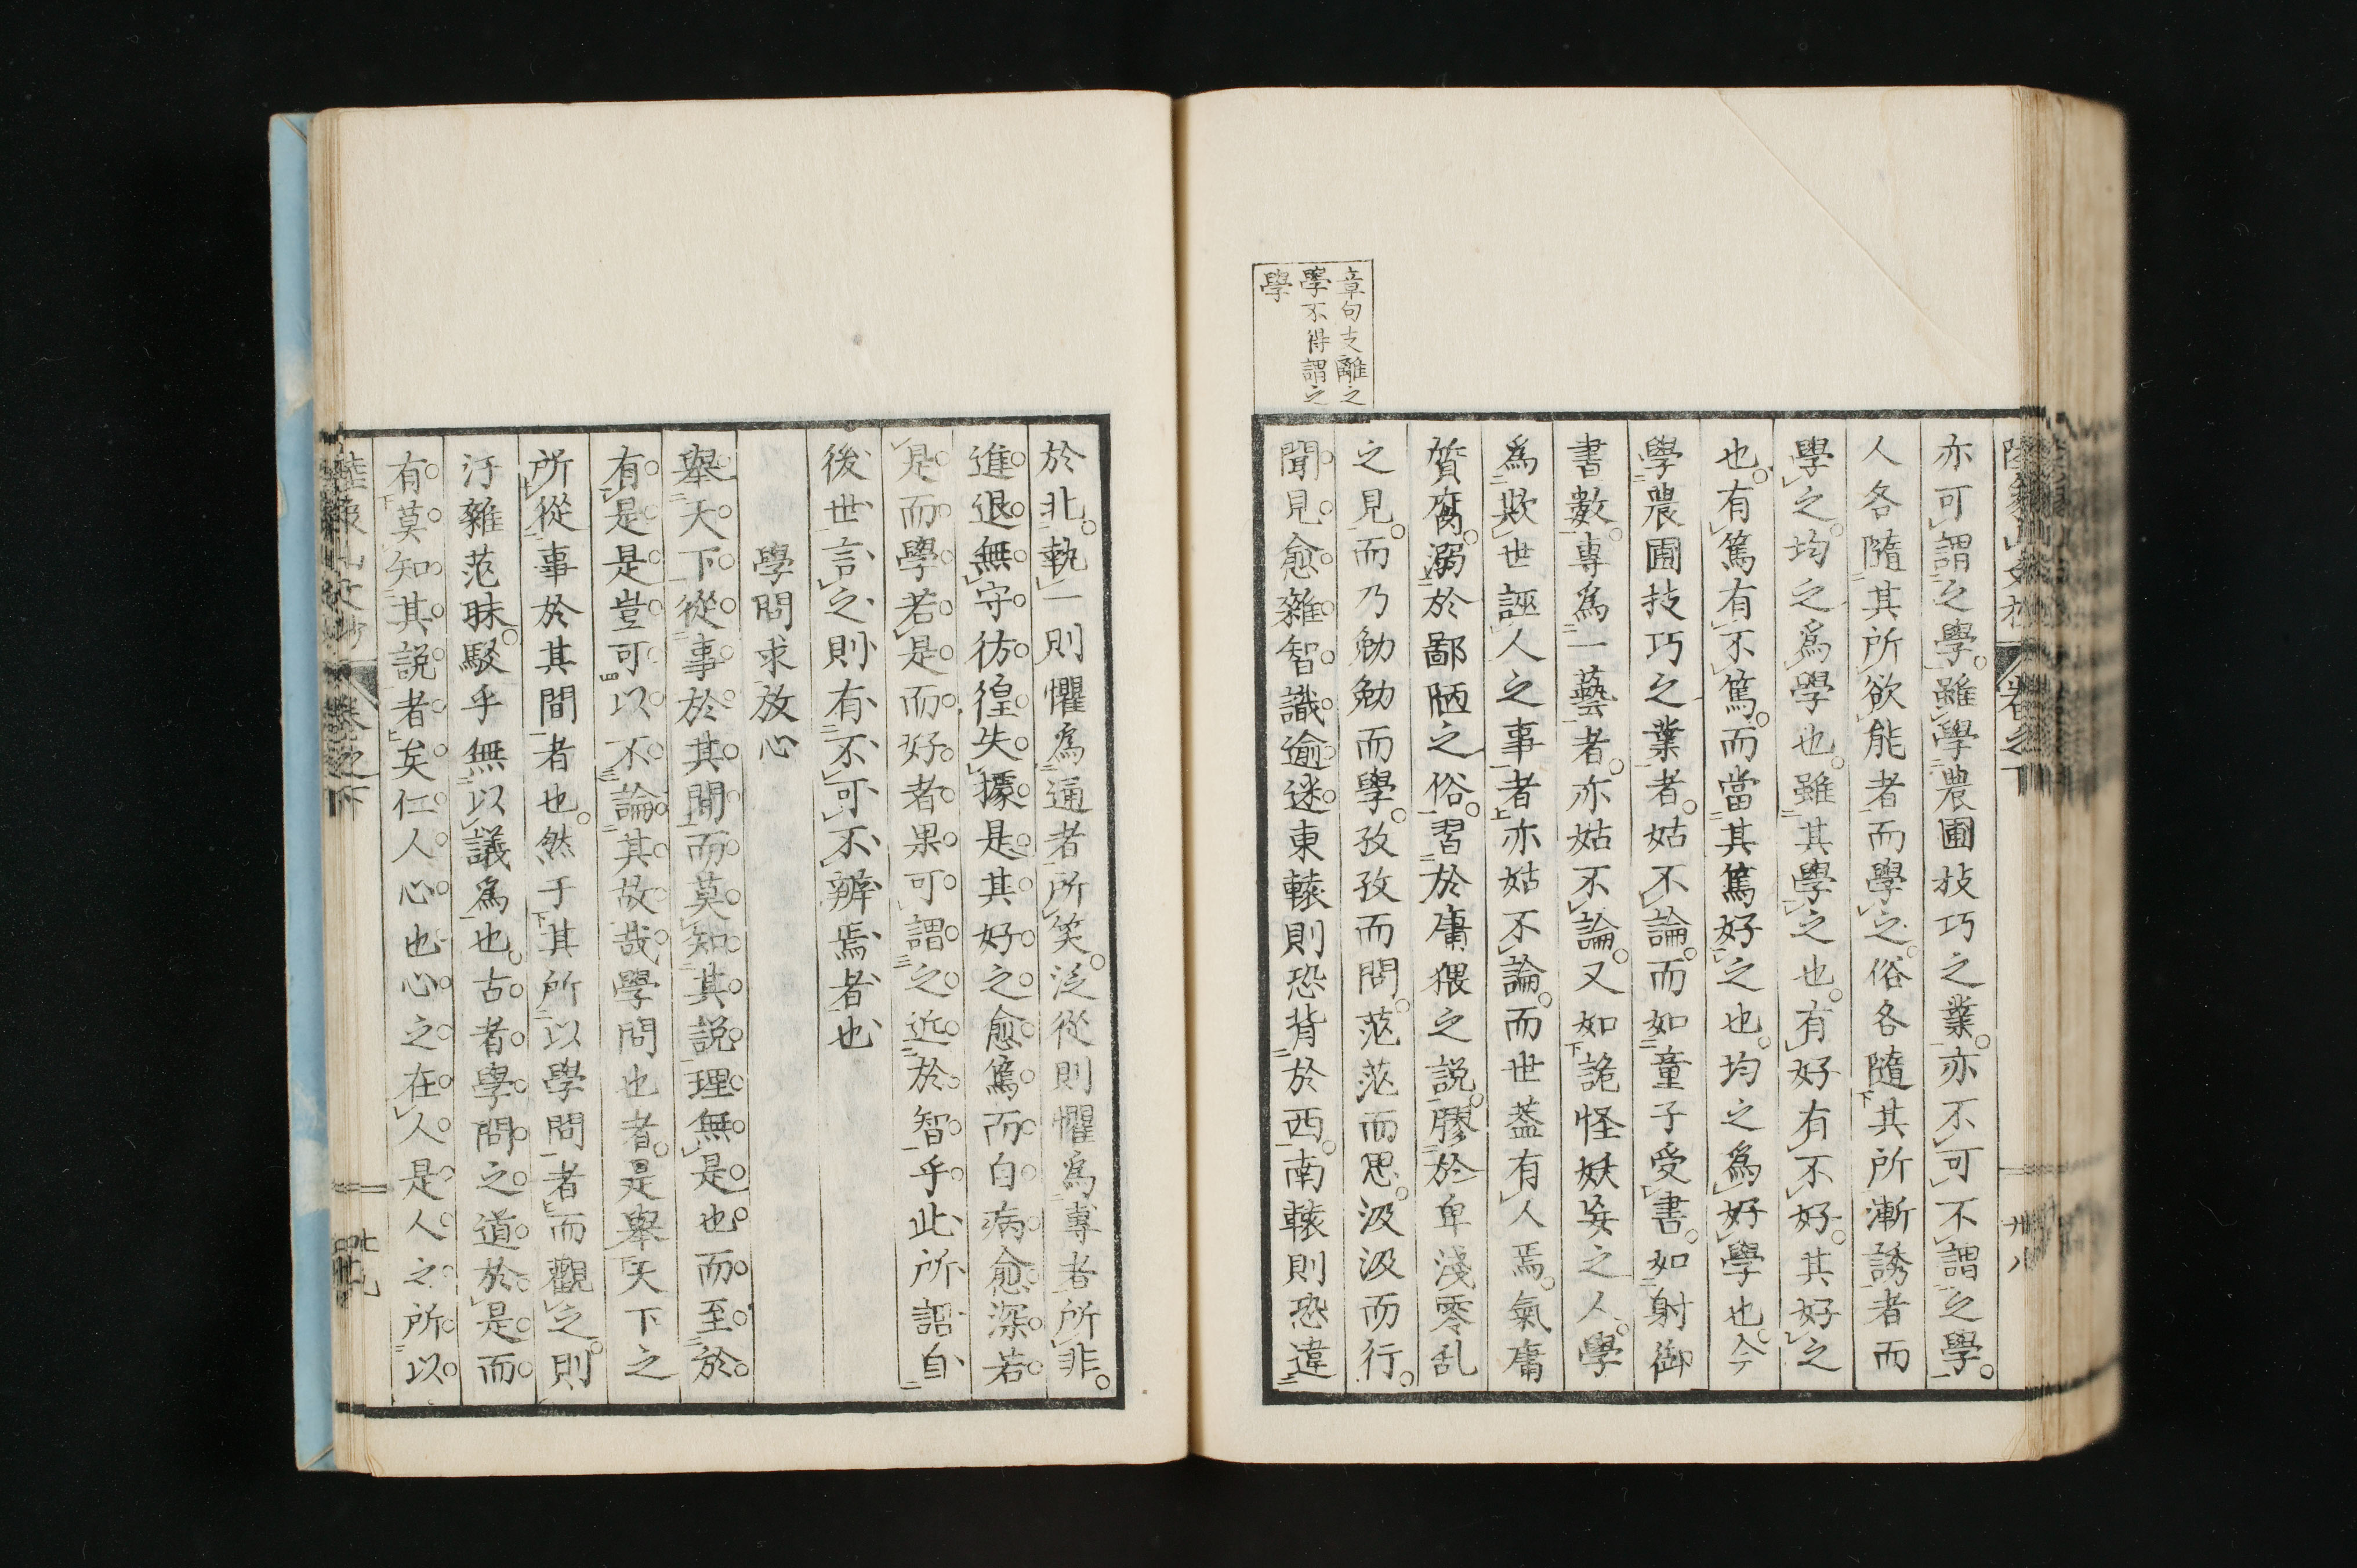 章句支離之
學不得謂之
學
亦可謂之學。雖學農圃技巧之業。亦不可不謂之學。
人各隨其所欲能者而學之。俗各隨其所漸誘者而
學之。均之爲學也。雖其學之也。有好有不好。其好之
也。有篤有不篤。而當其篤好之也。均之爲好學也。今
學農圃技巧之業者。姑不論。而如童子受書。如射御
書數。專爲一藝者。亦姑不論。又如詭怪妖妄之人。學
爲欺世誣人之事者。亦姑不論。而世蓋有人焉。氣庸
質腐。溺於鄙陋之俗。習於庸猥之説。膠於卑淺零乱
之見。而乃勉勉而學。孜孜而問。茫茫而思。汲汲而行。
聞見愈雜智識逾迷東轅則恐背於西。南轅則恐違
於北。執一則懼爲通者所笑。泛從則懼爲專者所非。
進退無守彷徨失據是其好之愈篤而自病愈深若
是而學若是而好者果可謂之近於智乎此所詔自
後世言之則有不可不辨焉者也
學問求放心
舉天下從事於其間而莫知其説理無是也而至於
有是是豈可以不論其故哉學問也者。是舉天下之
所從事於其間者也。然于其所以學問者而觀之。則
汙雜茫昧。駁乎無以議爲也。古者學問之道於是而
有莫知其説者矣仁人心也心之在人是人之所以